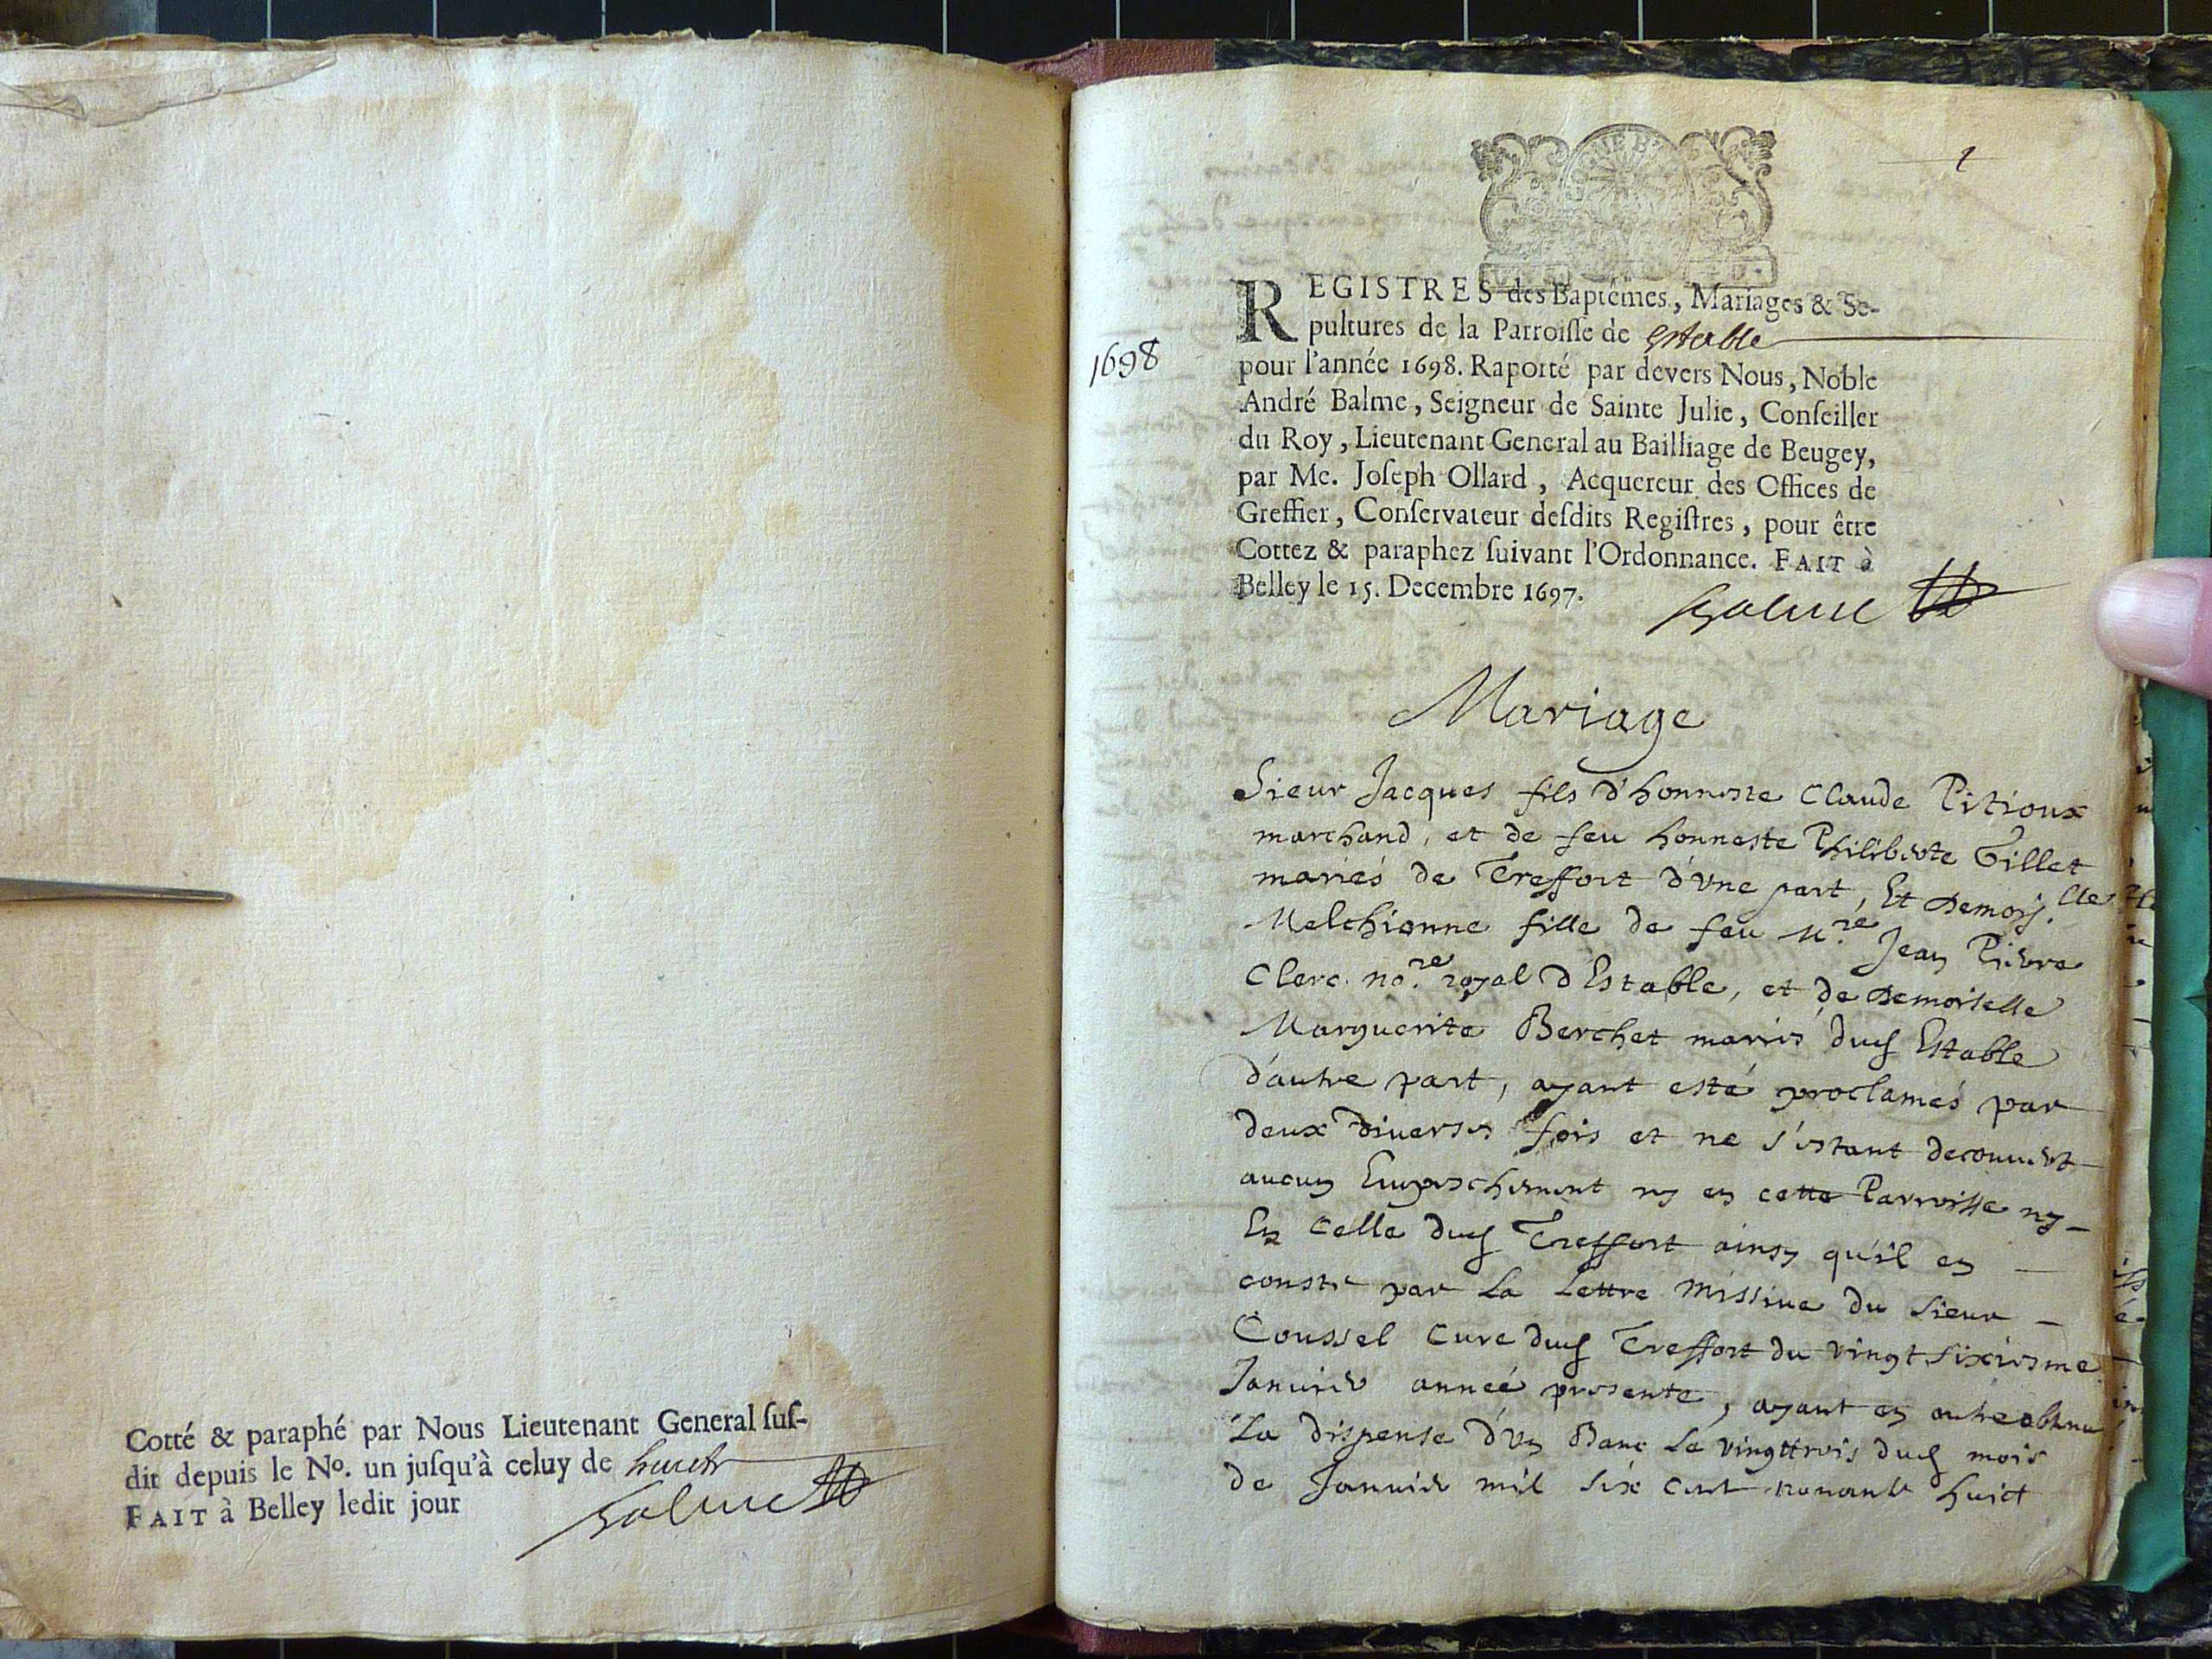 Cotté & paraphé par Nous Lieutenant General ſuſ-
dit depuis le No. un juſqu'à celuy de
FAIT à Belley ledit jour
Balme
1
REGISTRES des Baptêmes, Mariages & Se-
pultures de la Parroiſſe de Estable
1698
pour l'année 1698. Raporté par devers Nous, Noble
André Balme, Seigneur de Sainte Julie, Conſeiller
du Roy, Lieutenant General au Bailliage de Beugey,
par Me. Joſeph Ollard, Acquereur des Offices de
Greffier, Conſervateur deſdits Regiſtres, pour être
Cottez & paraphez ſuivant l'Ordonnance. FAIT à
Belley le 15. Decembre 1697.
Balme
Mariage
Sieur Jacques fils d'honneste Claude Pitioux
marchand, et de feu honneste Philiberte Tillet
mariés de Treffort d'vne part, Et Demois.lle
Melchionne fille de feu M.re Jean Pierre
Clerc no.re royal d'Estable, et de Demoiselle
Marguerite Berchet mariés dud Estable
d'autre part, ayant esté proclamés par
deux diverses fois et ne s'estant decouuert
aucun Empeschement ny en cette Parroisse ny
En celle dud Treffort ainsy qu'il en
conste par La Lettre missiue du Sieur
Coussel Curé dud Treffort du vingt sixiesme
Januier année presente, ayant en outre obtenu
La dispense d'vn Banc Le vingttrois dud mois
de Januier mil six cent nonante huict